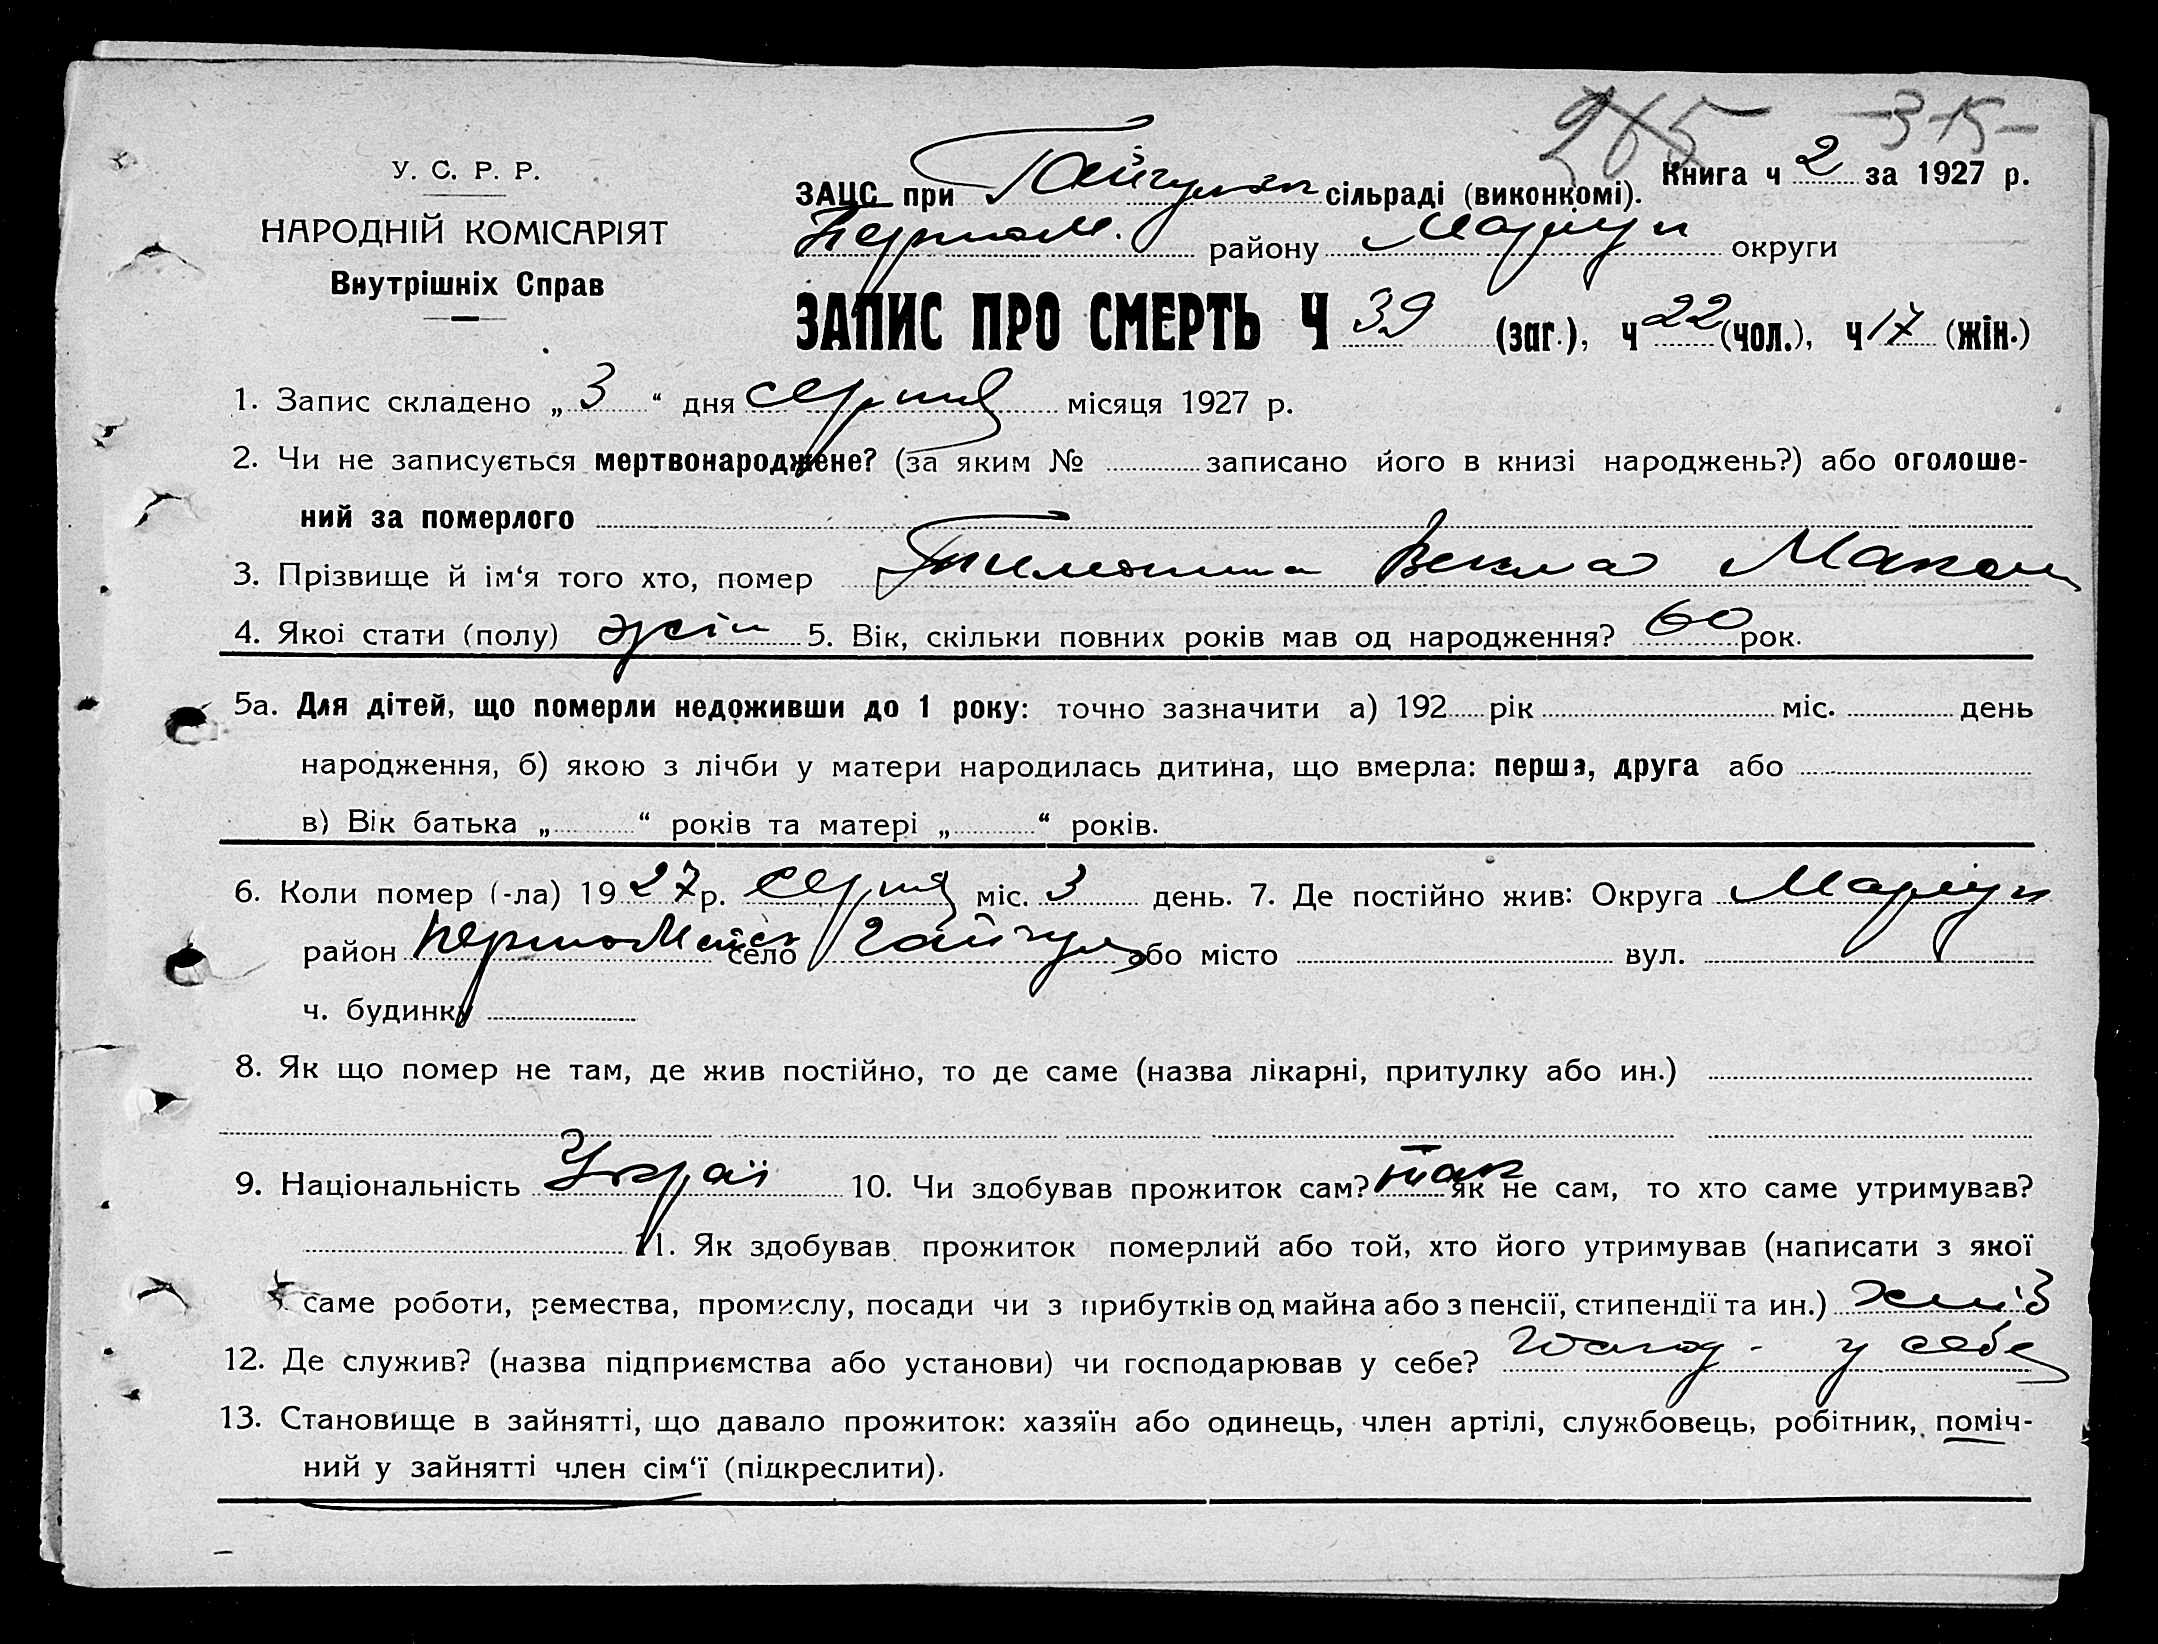 265 -315-
У. С. Р. Р.
НАРОДНІЙ КОМІСАРІЯТ
Внутрішніх Справ
Книга ч 2 за 1927 р.
ЗАЦС при Гайчульск сільраді (виконкомі).
Первом. району Маріуп округи
ЗАПИС ПРО СМЕРТЬ Ч 39 (заг.), ч 22 (чол.), ч 17 (жін.)
1. Запис складено „ 3 “ дня серпня місяця 1927 р.
2. Чи не записується мертвонароджене? (за яким № записано його в книзі народжень?) або оголоше-
ний за померлого
3. Прізвище й ім‘я того хто, помер Тимошина Векла Макси
4. Якоі стати (полу) жін 5. Вік, скільки повних років мав од народження? 60 рок.
5а. Для дітей, що померли недоживши до 1 року: точно зазначити а) 192 рік міс. день
народження, б) якою з лічби у матери народилась дитина, що вмерла: перша, друга або
в) Вік батька „ “ років та матері „ “ років.
6. Коли помер (-ла) 1927 р. серпня міс. 3 день. 7. Де постійно жив: Округа Маріуп
район Первомайськ село Гайчул або місто вул.
ч. будинку
8. Як що помер не там, де жив постійно, то де саме (назва лікарні, притулку або ин.)
9. Національність Украї 10. Чи здобував прожиток сам? так як не сам, то хто саме утримував?
11. Як здобував прожиток померлий або той, хто його утримував (написати з якої
саме роботи, ремества, промислу, посади чи з прибутків од майна або з пенсії, стипендії та ин.) хліб
12. Де служив? (назва підприємства або установи) чи господарював у себе? Господ - у себе
13. Становище в зайнятті, що давало прожиток: хазяїн або одинець, член артілі, службовець, робітник, поміч-
ний у зайнятті член сім‘ї (підкреслити).